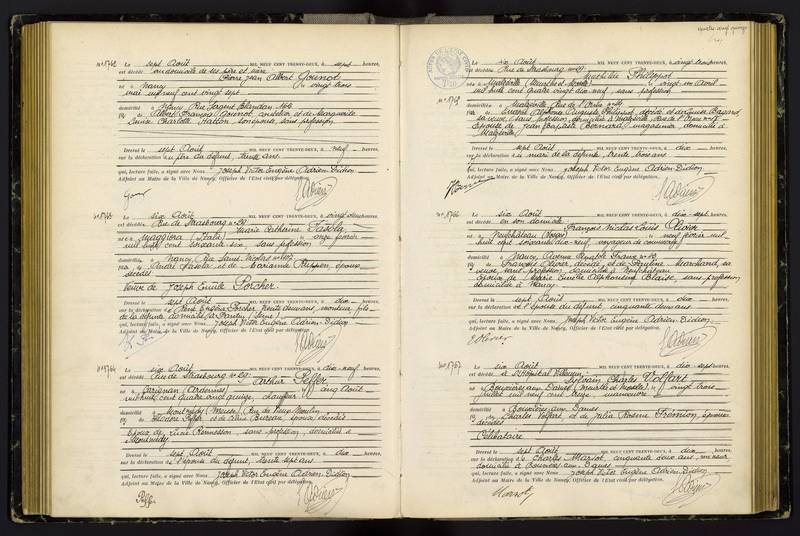 N° 1762 Le sept Août MIL NEUF CENT TRENTE-DEUX, à sept heures,
est décédé au domicile de ses père et mère
Pierre Jean Albert Gounot
né à Nancy le vingt trois
mai mil neuf cent vingt sept
domicilié à Nancy, Rue Sergent Blandan
fils de Albert François Gounot, et de Marguerite
Louise Charlotte Hatton, son épouse, sans profession
Dressé le sept Août MIL NEUF CENT TRENTE-DEUX, à neuf heures,
sur la déclaration du père du défunt, trente ans
qui, lecture faite, a signé avec Nous Joseph Victor Eugène Adrien-Didion
Adjoint au Maire de la Ville de Nancy, Officier de l'Etat civil par délégation.
N° 1763 Le six Août MIL NEUF CENT TRENTE-DEUX, à vingt heures,
est décédée Rue de Strasbourg n° 29
Marie Catherine Fasola
née à Maggiora (Italie) le onze février
mil huit cent soixante six, sans profession
domiciliée à Nancy, Rue Saint Nicolas
fille de André Fasola et de Marianne époux
décédés
Veuve de Joseph Emile Porcher
Dressé le sept Août MIL NEUF CENT TRENTE-DEUX, à dix heures,
sur la déclaration de René Eugène Porcher, trente deux ans, fils
de la défunte, domicilié à Pantin (Seine)
qui, lecture faite, a signé avec Nous Joseph Victor Eugène Adrien-Didion
Adjoint au Maire de la Ville de Nancy, Officier de l'Etat civil par délégation.
N° 1764 Le six Août MIL NEUF CENT TRENTE-DEUX, à dix-neuf heures,
est décédé Rue de Strasbourg n° 29
Arthur Peffer
né à Carignan (Ardennes) le cinq Août
mil huit cent quatre vingt quinze, chauffeur
domicilié à Montmédy (Meuse) Rue du Vieux Moulin
fils de Peffer et de Bureau, époux décédés
Époux de Lucie Pannesson, sans profession, domiciliée à
Montmédy
Dressé le sept Août MIL NEUF CENT TRENTE-DEUX, à dix heures,
sur la déclaration de l'épouse du défunt, trente sept ans
qui, lecture faite, a signé avec Nous Joseph Victor Eugène Adrien-Didion
Adjoint au Maire de la Ville de Nancy, Officier de l'Etat civil par délégation.
Peffer
N° 1765 Le six Août MIL NEUF CENT TRENTE-DEUX, à vingt heures,
est décédée Rue de Strasbourg n° 29
Mathilde Philippot
née à Malzéville (Meurthe et Moselle) le vingt un Avril
mil huit cent quatre vingt dix neuf, sans profession
domiciliée à Malzéville, Rue de
fille de Auguste Philippot, décédé et de Bagard,
sa veuve, sans profession, domiciliée à Malzéville
Épouse de Jean Baptiste Bernard, magasinier, domicilié à
Malzéville
Dressé le sept Août MIL NEUF CENT TRENTE-DEUX, à dix heures,
sur la déclaration du mari de la défunte, trente trois ans
qui, lecture faite, a signé avec Nous Joseph Victor Eugène Adrien-Didion
Adjoint au Maire de la Ville de Nancy, Officier de l'Etat civil par délégation.
N° 1766 Le six Août MIL NEUF CENT TRENTE-DEUX, à dix-sept heures,
est décédé en son domicile
François Nicolas Louis Olivier
né à Neufchâteau (Vosges) le neuf février mil
huit cent soixante dix-neuf, voyageur de commerce
domicilié à Nancy, Avenue Anatole France
fils de François Olivier, décédé, et de Pauline Marchand, sa
veuve, sans profession, domiciliée à Neufchâteau
époux de Marie Emilie Alphonsine Blaise, sans profession,
domiciliée à Nancy
Dressé le sept Août MIL NEUF CENT TRENTE-DEUX, à dix heures,
sur la déclaration de l'épouse du défunt, cinquante deux ans
qui, lecture faite, a signé avec Nous Joseph Victor Eugène Adrien-Didion
Adjoint au Maire de la Ville de Nancy, Officier de l'Etat civil par délégation.
E Olivier
N° 1767 Le six Août MIL NEUF CENT TRENTE-DEUX, à dix-sept heures,
est décédé à l'Hôpital Villemin
Sylvain Charles Volfart
né à Bouxières aux Dames (Meurthe et Moselle) le vingt trois
juillet mil neuf cent treize, manœuvre
domicilié à Bouxières aux Dames
fils de Charles Volfart et de Julia Rosine Frémion, époux
décédés
Célibataire
Dressé le sept Août MIL NEUF CENT TRENTE-DEUX, à dix heures,
sur la déclaration de Charles Marsot, cinquante deux ans,
domicilié à Bouxières aux Dames
qui, lecture faite, a signé avec Nous Joseph Victor Eugène Adrien-Didion
Adjoint au Maire de la Ville de Nancy, Officier de l'Etat civil par délégation.
Marsot